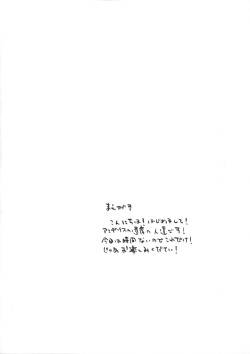 まえがき
こんにちは!はじめまして!
アンデリスの
の人達です!
今回は時間ないのでこれだけ!
じゃあお楽しみください!